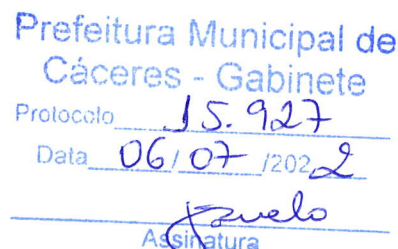 Prefeitura Municipal de
Cáceres - Gabinete
Protocolo 15.927
Data 06/07/2022
Assinatura